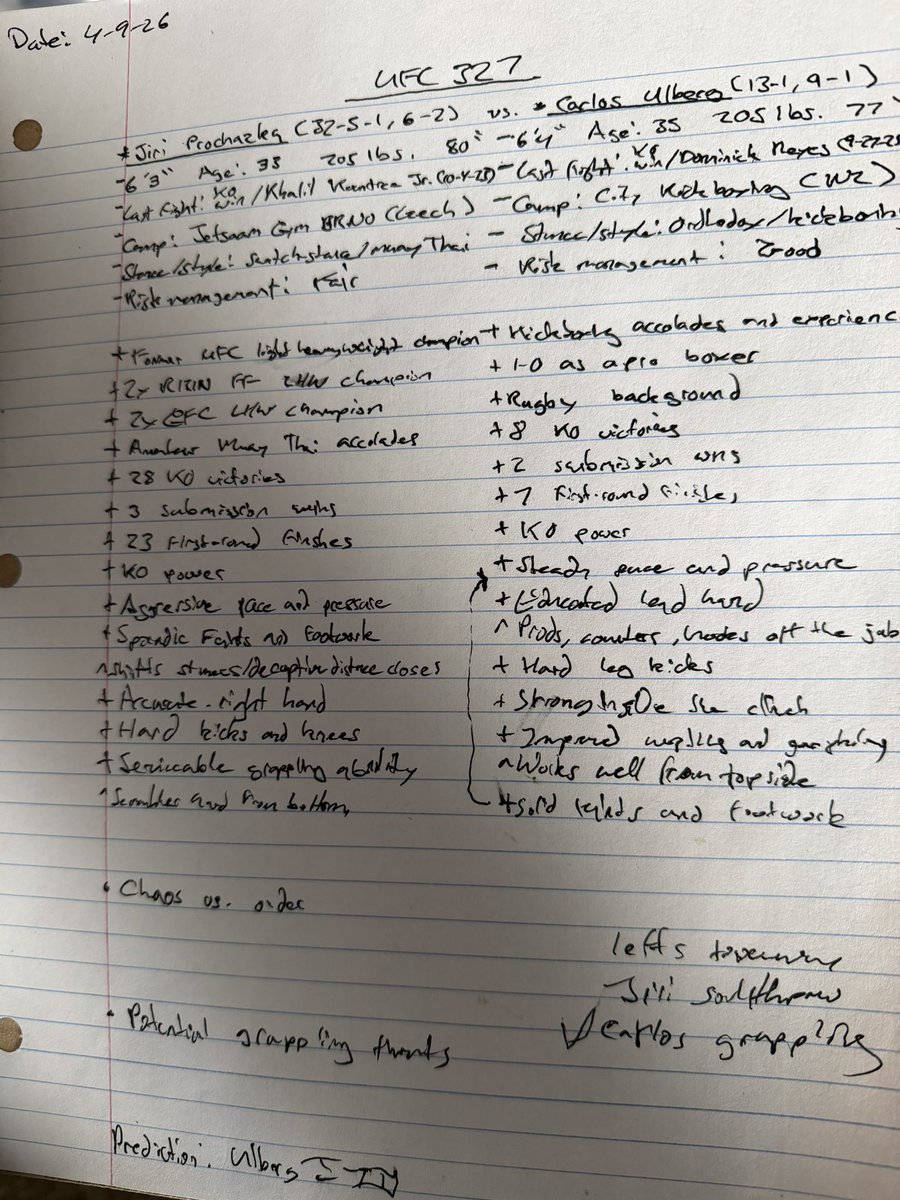 Date: 4-9-26
UFC 327
*Jiri Prochazka (32-5-1, 6-2) vs. *Carlos Ulberg (13-1, 9-1)
-6'3" Age: 33 205 lbs. 80" -6'4" Age: 35 205 lbs. 77"
-Last fight: KO win/Khalil Rountree Jr. (10-4-25) -Last fight: KO win/Dominick Reyes (9-27-25
-Camp: Jetsaam Gym BRNO (Czech) -Camp: City Kickboxing (NZ)
-Stance/style: Switch-stance/muay Thai - Stance/style: Orthodox/kickboxing
-Risk management: Fair - Risk management: Good
+Former UFC light heavyweight champion + Kickboxing accolades and experience
+2x RIZIN FF LHW champion + 1-0 as a pro boxer
+ 2x GFC LHW champion +Rugby background
+ Amateur Muay Thai accolades +8 KO victories
+ 28 KO victories +2 submission wins
+ 3 submission wins +7 First-round finishes
+ 23 First-round finishes +KO power
+KO power +Steady pace and pressure
+Aggressive pace and pressure +Educated lead hand
+Sporadic Feints and footwork ^Prods, counters, hooks off the jab
^Shifts stances/deceptive distance closes + Hard leg kicks
+ Accurate right hand +Strong inside the clinch
+Hard kicks and knees +Improved wrestling and grappling
+Serviceable grappling ability ^Works well from topside
^Scrambles hard from bottom +Solid feints and footwork
• Chaos vs. order
lefts
Jiri southpaw
Carlos grappling
• Potential grappling threats
Prediction: Ulberg